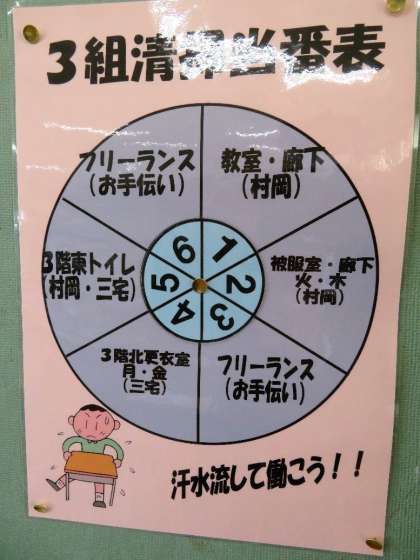 3組清掃当番表
フリーランス
(お手伝い)
教室・廊下
(村岡)
3階東トイレ
(村岡・三宅)
被服室・廊下
火・木
(村岡)
3階北更衣室
月・金
(三宅)
フリーランス
(お手伝い)
6
1
5
2
4
3
汗水流して働こう！！